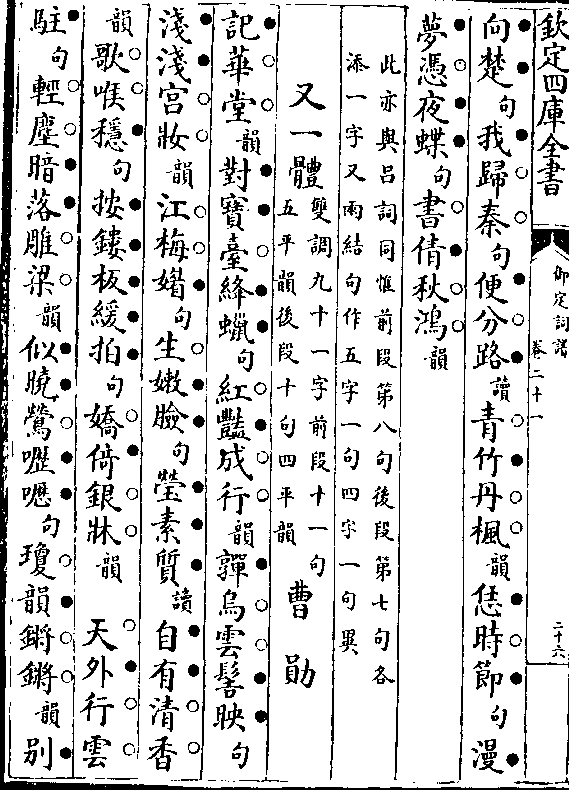 欽定四庫全書
御定詞譜
卷二十一
二十六
向楚句我歸秦句便分路讀青竹丹楓韻恁時節句漫
夢憑夜蝶句書倩秋鴻韻
此亦與呂詞同惟前段第八句後段第七句各
添一字又兩結句作五字一句四字一句異
又一體雙調九十一字前段十一句五平韻後段十句四平韻 曹勛
記華堂韻對寶臺絳蠟句紅豔成行韻嚲烏雲髻映句
淺淺宮妝韻江梅媚句生嫩臉句瑩素質讀自有清香
韻歌喉穩句按鏤板緩拍句嬌倚銀牀韻 天外行雲
駐句輕塵暗落雕梁韻似曉鶯嚦嚦句瓊韻鏘鏘韻别